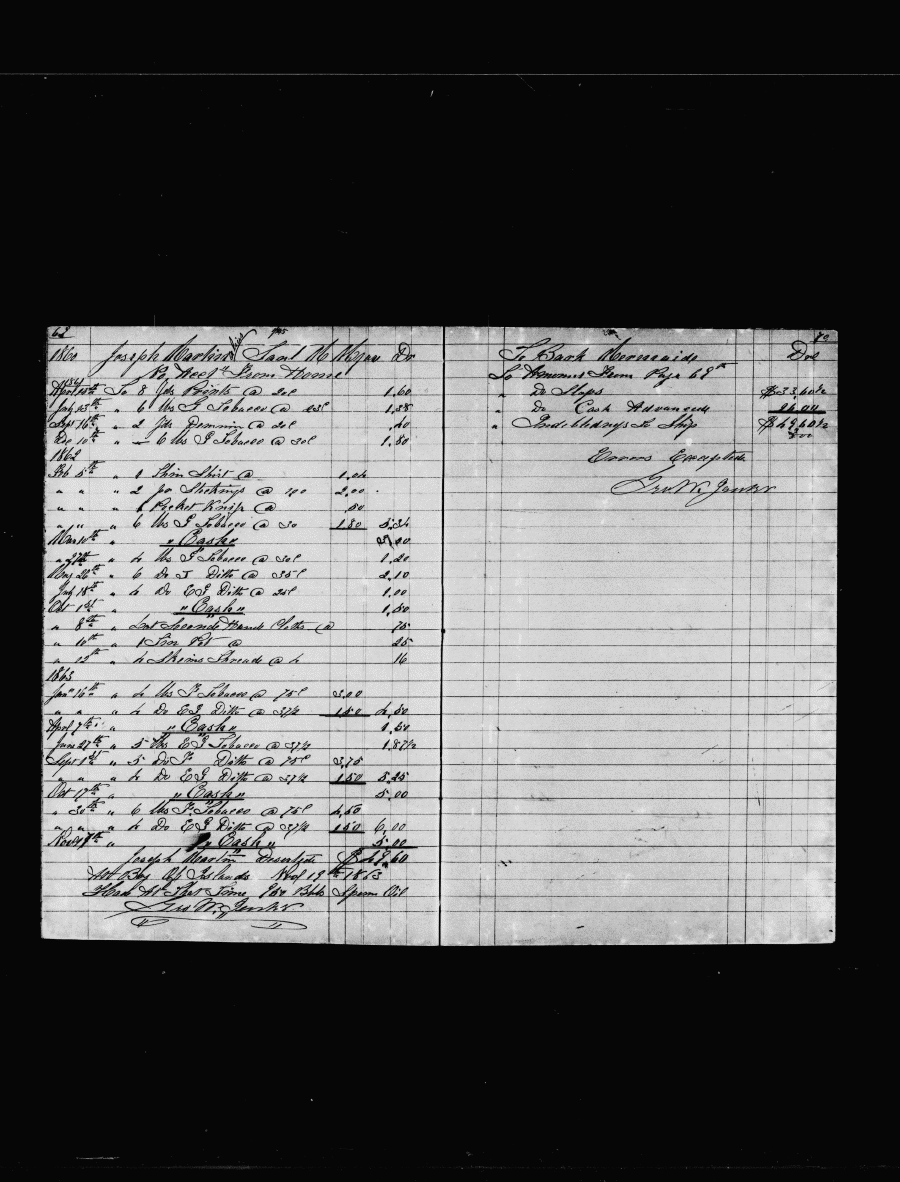 62
1860 Joseph Martin Dr
No Acct From Home
1861
April 13th To 8 Yds Prints @ 20c 1.60
July 13th " 6 lbs T Tobacco @ 23c 1.38
Sept 16th " 2 Yds Demmin @ 20c .40
Dec 10th " 6 lbs T Tobacco @ 30c 1.80
1862
Feb 5th " 1 Thin Shirt @ 1.04
" " " 2 pr Stockings @ 1.00 2.00
" " " 1 Pocket Knife @ .50
" " " 6 lbs T Tobacco @ 30 1.80 5.34
Mar 10th " " Cash "
" 27th " 4 lbs T Tobacco @ 30c 1.20
" 6 Do T Ditto @ 35c 2.10
July 18th " 4 Do EJ Ditto @ 25c 1.00
Oct 1st " Cash " 1.50
" 8th " Second Hand Cloths @ 75
" 10th " 1 Tin Pot @ 25
" 12th " 4 Skeins Threads @ 4 16
1863
Jan 16th " 4 lbs T Tobacco @ 75c 3.00
" " " 4 Do EJ Ditto @ 37½ 1.50 4.50
April 7th " " Cash " 1.50
June 27th " 5 lbs EJ Tobacco @ 37½ 1.87½
Sept 1st " 5 Do T Ditto @ 75c 3.75
" " " 4 Do EJ Ditto @ 37½ 1.50 5.25
Oct 17th " " Cash " 5.00
" 30th " 6 lbs T Tobacco @ 75c 4.50
" " " 4 Do EJ Ditto @ 37½ 1.50 6.00
Nov 7th " " Cash " 5.00
Joseph Martin Deserted $49.60
At Bay Of Islands Nov 19th 1863
Had At That Time Bbls Sperm Oil
Geo W. Junker
70
To Bark Mermaids Drs
To Amount From Page 69th
" Do Slops $33.60½
" Do Cash Advanced 16.00
" Indebtedness To Ship $49.60½
Errors Excepted
Geo W. Junker